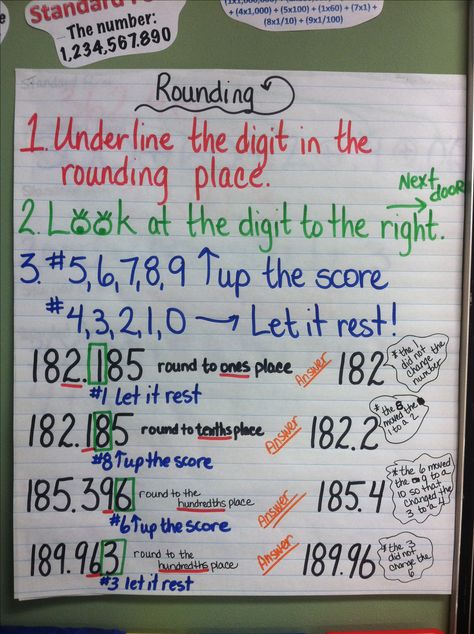 Standard
The number:
1,234,567,890
+ (4x1,000) + (5x100) + (1x60) + (7x1) +
(8x1/10) + (9x1/100)
Rounding
1. Underline the digit in the
rounding place.
Next door
2. Look at the digit to the right.
3. #5,6,7,8,9 ↑ up the score
#4,3,2,1,0 → Let it rest!
182.185 round to ones place Answer 182 *the 1 did not change the number
#1 Let it rest
182.185 round to tenths place Answer 182.2 *the 8 moved the 1 to a 2
#8 ↑ up the score
185.396 round to the hundredths place Answer 185.4 *the 6 moved the 9 to a 10 so that changed the 3 to a 4
#6 ↑ up the score
189.963 round to the hundredths place Answer 189.96 *the 3 did not change the 6
#3 let it rest